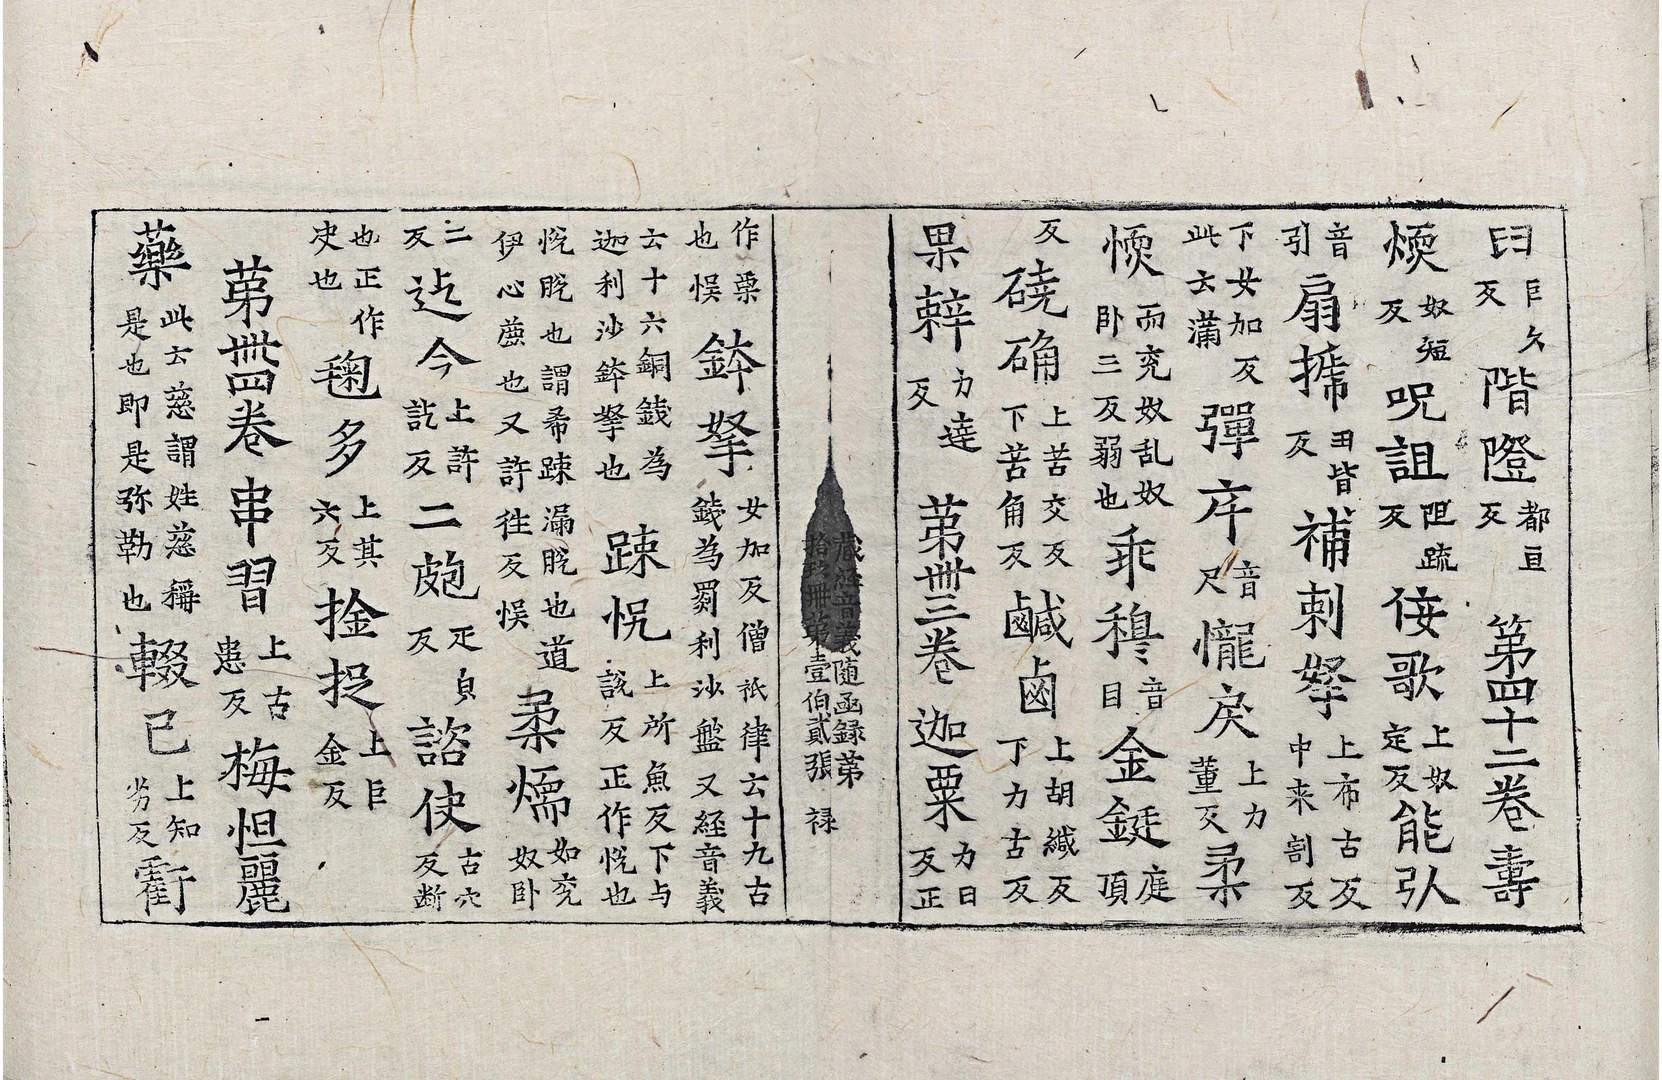 臼巨久反階隥都亘反第四十二卷壽
煗奴短反呪詛阻疏反侫歌上奴定反能引
音引扇搋丑皆反補刺拏上布古反中来割反
下女加反此云蒲彈斥音尺㦬戾上力董反柔
愞而兖奴乱奴卧三反弱也乖穆音目金鋌庭頂
反磽确上苦交反下苦角反鹹鹵上胡緘反下力古反
果辢力達反第卌三卷迦粟力日反正
藏經音義随函録第拾玖冊第壹伯貳張 禄
作栗也悮鉢拏女加反僧祇律云十九古錢為蜀利沙盤又經音義
云十六銅錢為迦利沙鉢拏也踈悅上所魚反下与說反正作悅也
悅脫也謂希踈漏脫也道伊心䕌也又許往反悮柔燸如兖奴卧
二反迄今上許訖反二皰疋皃反諮使古穴反断
也正作史也毱多上其六反捦捉上巨金反
第卌四卷串習上古患反梅怛麗
藥此云慈謂姓慈稱是也即是弥勒也輟已上知劣反䨥